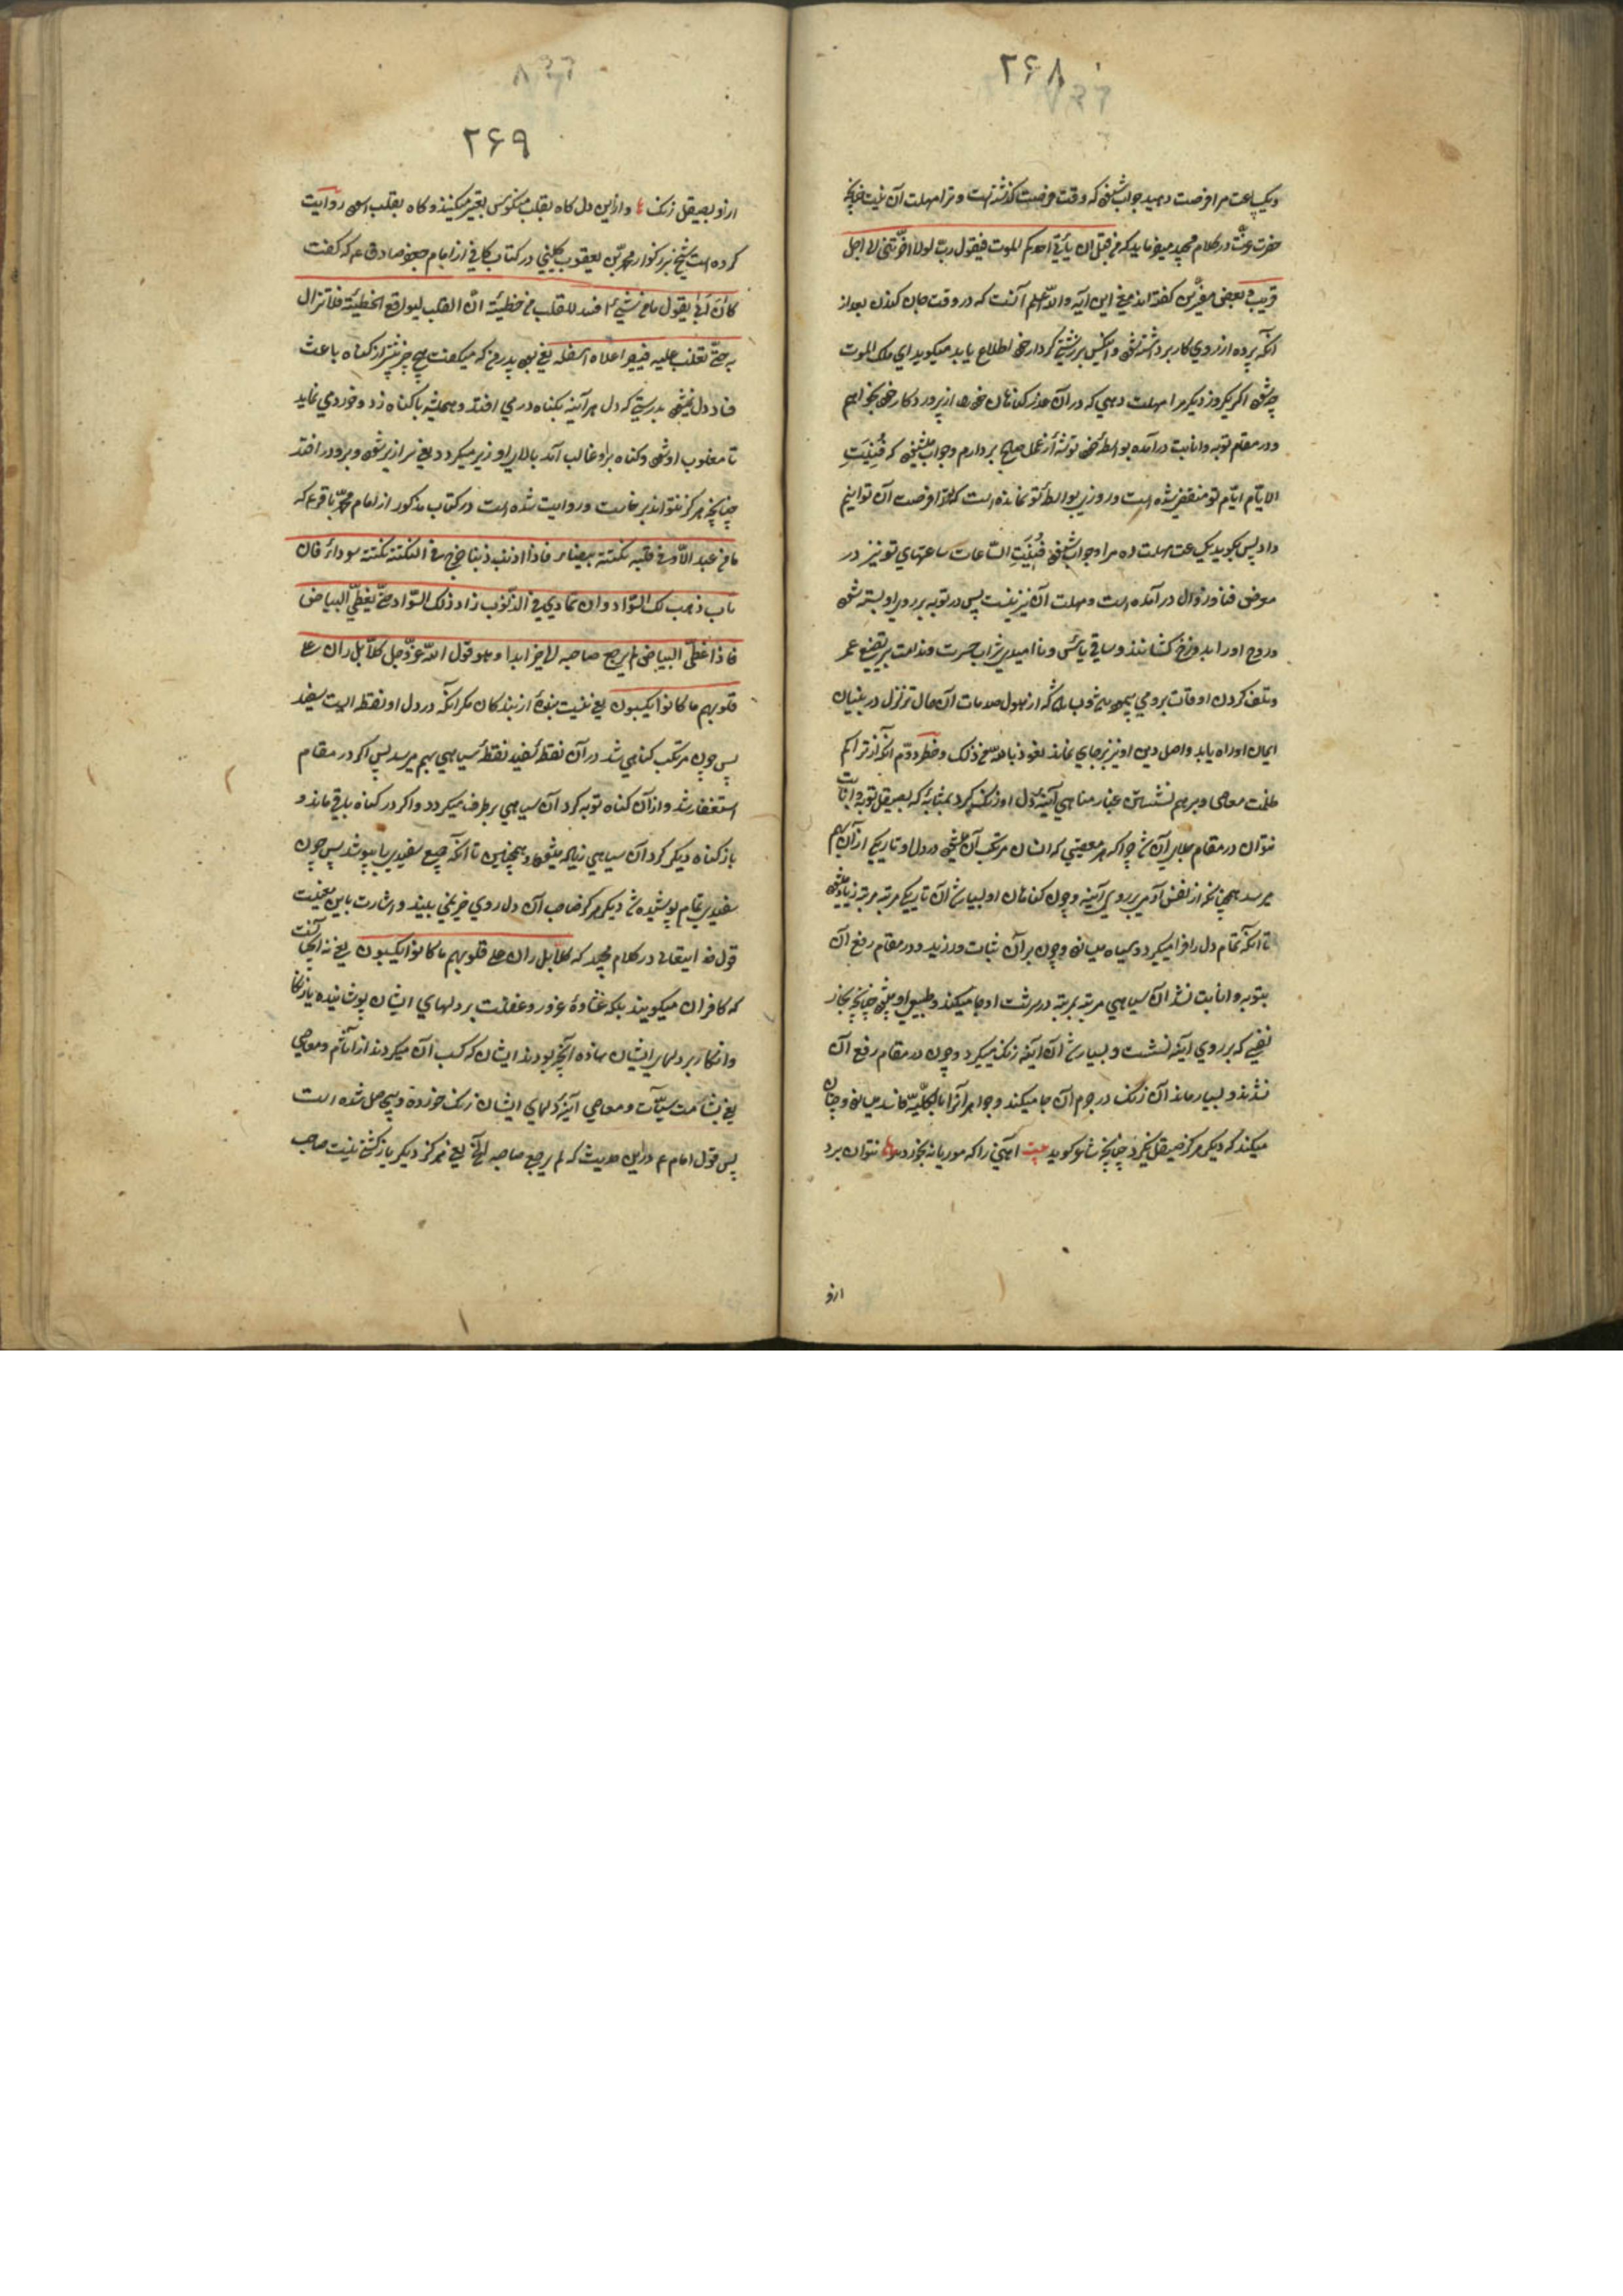 ۲۶۸
ویکساعت مرا فرصت دهید جواب شنود که وقت فرصت گذشته است و ترا مهلت آن نیست چنانچه
حضرت عزت در کلام مجید میفرماید که من قبل ان یأتی احدکم الموت فیقول رب لولا اخرتنی الی اجل
قریب و بعضی مفسرین گفته‌اند معنی این آیه والله اعلم آنست که در وقت جان کندن بعد از
آنکه پرده از روی کار برداشته شود و آنکس بر زشتی کردار خود اطلاع یابد میگوید ای ملک الموت
چه شود اگر یکروز دیگر مرا مهلت دهی که در آن عذر گناهان خود را از پروردگار خود بخواهم
و در مقام توبه و انابت در آمده بواسطهٔ خود توشهٔ از عمل صالح بردارم و جواب میشنود که فُنِیَتِ
الایّام ایّام تو منقضی شده است و روزی بواسطهٔ تو نمانده است که ترا فرصت آن توانیم
داد پس بگوید یک ساعت مهلت ده مرا و جواب شنود فُنِیَتِ السّاعات ساعتهای تو نیز در
معرض فنا و زوال در آمده است و مهلت آن نیز نیست پس در توبه بر روی او بسته شود
و روح او را بدوزخ کشانند و ساقی یأس و ناامیدی شراب حسرت و ندامت بر تضیع عمر
و تلف کردن اوقات بر وی پیموده شود باشد که از هول صدمات آن حال تزلزل در بنیان
ایمان او راه یابد و اصل دین او نیز برجای نماند نعوذ بالله من ذلک و خطر دوّم آنکه از تراکم
ظلمت معاصی و برهم نشستن غبار مناهی آینه دل او زنگ گیرد بمثابهٔ که بصیقل توبه و انابت
نتوان در مقام جلای آن شد چرا که هر معصیتی که انسان مرتکب آن میشود در دل او تاریکی از آن بهم
میرسد همچنانکه از نفس آدمی بر روی آینه و چون گناهان او بسیار شد آن تاریکی مرتبه مرتبه زیاد میشود
تا آنکه تمام دل را فرا میگیرد و سیاه میسازد و چون بر آن ثبات ورزید و در مقام رفع آن
بتوبه و انابت نشد آن سیاهی مرتبه بمرتبه در سرشت او جا میکند و طبیعی او میشود چنانچه بخار
نفسی که بر روی آینه نشست و بسیار شد آن آینه زنگ میگیرد و چون در مقام رفع آن
نشدند و بسیار ماند آن زنگ در جرم آن جا میکند و جواهر آنرا بالکلّیه فاسد میسازد و چنان
میکند که دیگر هرگز صیقل نگیرد چنانچه شاعر گوید بیت آهنی را که موریانه بخورد نتوان برد
ازو
۲۶۹
ازو بصیقل زنگ و از این دل گاه بقلب منکوس تعبیر میکنند و گاه بقلب اسود روایت
کرده است شیخ بزرگوار محمّد بن یعقوب کلینی در کتاب کافی از امام جعفر صادق ع که گفت
کانَ أبی یقول ما من شیئ افسد للقلب من خطیئة انّ القلب لیواقع الخطیئة فلا تزال
به حتّی تغلب علیه فیصیر اعلاه اسفله یعنی بود پدر من که میگفت هیچ چیز بیشتر از گناه باعث
فساد دل نمیشود بدرستی که دل هر آینه بگناه در می افتد و همیشه با گناه زد و خوردی نماید
تا مغلوب او شود و گناه بر او غالب آید بالای او زیر میگردد یعنی سرازیر شود و برو در افتد
چنانچه هرگز نتواند برخاست و روایت شده است در کتاب مذکور از امام محمّد باقر ع که
ما من عبد الّا و فی قلبه نکتة بیضاء فاذا اذنب ذنبا خرج فی النکتة نکتة سوداء فان
تاب ذهب تلک السّواد و ان تمادی فی الذّنوب زاد ذلک السّواد حتّی یغطّی البیاض
فاذا غطّی البیاض لم یرجع صاحبه الی خیر ابدا و هو قول الله عزّ و جل کلّا بل ران علی
قلوبهم ما کانوا یکسبون یعنی نیست بندهٔ از بندگان مگر آنکه در دل او نقطه ایست سفید
پس چون مرتکب گناهی شد در آن نقطهٔ سفید نقطهٔ سیاهی بهم میرسد پس اگر در مقام
استغفار شد و از آن گناه توبه کرد آن سیاهی بر طرف میگردد و اگر در گناه باقی ماند و
باز گناه دیگر کرد آن سیاهی زیاده میشود و همچنین تا آنکه جمیع سفیدی را بپوشد پس چون
سفیدی تمام پوشیده شد دیگر هرگز صاحب آن دل روی خیر نمی بیند و اشارت باین معنیست
قول خدایتعالی در کلام مجید که کلّا بل ران علی قلوبهم ما کانوا یکسبون یعنی نه آنچنانست
که کافران میگویند بلکه غشاوهٔ غرور و غفلت بر دلهای ایشان پوشانیده
و انکار بر دلهای ایشان مانده آنچه بودند ایشان که کسب آن میکردند از مآثم و معاصی
یعنی بشآمت سیّئات و معاصی آینهٔ دلهای ایشان زنگ خورده و شده است
پس قول امام ع در این حدیث که لم یرجع صاحبه الخ یعنی هرگز دیگر بازگشتی نیست صاحب